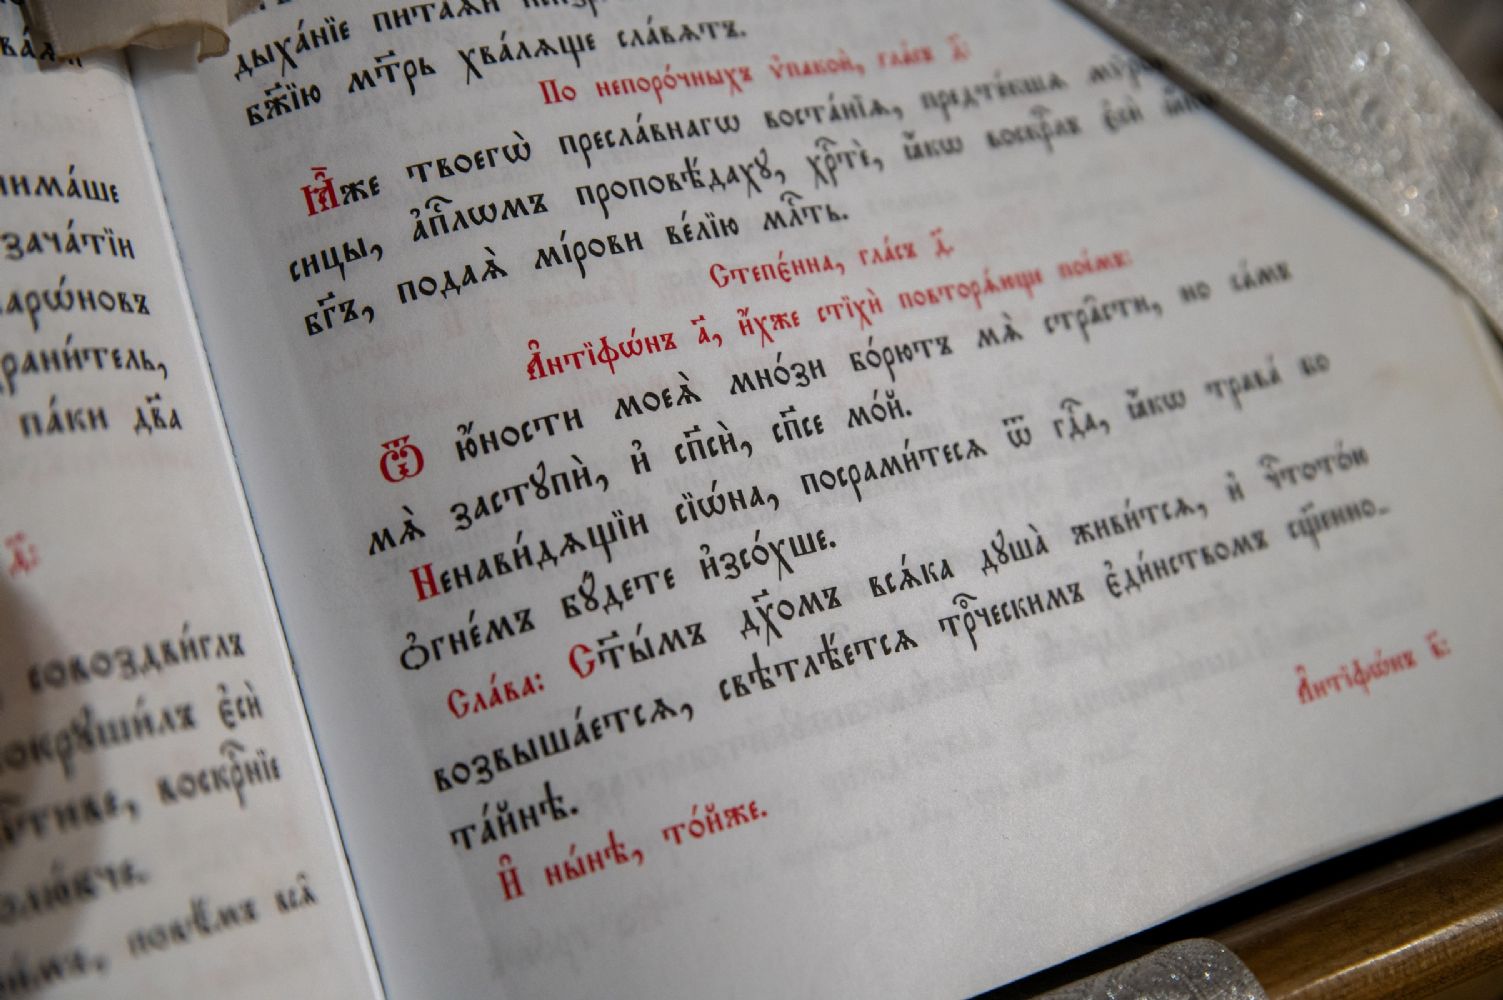 ва́ѧ
нима́ше
зача́тїи
арѡ́новъ
храни́тель,
па́ки два҃
д҃:
совоздви́глъ
сокрꙋши́лъ є҆сѝ
воскрⷭ҇нїе
повѣ́мъ всѧ̑
дыха́нїе пита́ѧй
бж҃їю мт҃рь хва́лѧще сла́вѧтъ.
По непоро́чныхъ ѵ҆пакоѝ, гла́съ д҃:
Ꙗ҆̀же твоегѡ̀ пресла́внагѡ воста́нїѧ, предте́кшѧ мѷро-
сицы, а҆пⷭ҇лѡмъ проповѣ́даху, хрⷭ҇тѐ, ꙗ҆́кѡ воскрⷭ҇лъ є҆сѝ ꙗ҆́кѡ
бг҃ъ, подаѧ̀ мі́рови ве́лїю млⷭ҇ть.
Степє́нна, гла́съ д҃.
А҆нтїфѡ́нъ а҃, и҆́хже стїхѝ повторѧ́юще пое́мъ:
Ѿ ю҆́ности моеѧ̀ мно́зи бо́рютъ мѧ̀ стра̑сти, но са́мъ
мѧ̀ застꙋпѝ, и҆ сп҃сѝ, сп҃се мо́й.
Ненави́дѧщїи сїѡ́на, посрами́тесѧ ѿ гдⷭ҇а, ꙗ҆́кѡ трава́ бо
ѻ҆гне́мъ бꙋ́дете и҆зсо́хше.
Сла́ва: Ст҃ы́мъ дх҃омъ всѧ́ка дꙋша̀ живи́тсѧ, и҆ чⷭ҇тото́ю
возвыша́етсѧ, свѣтлѣ́етсѧ трⷪ҇ческимъ є҆ди́нствомъ сщ҃енно-
та́йнѣ.
И҆ ны́нѣ, то́йже.
А҆нтїфѡ́нъ в҃: